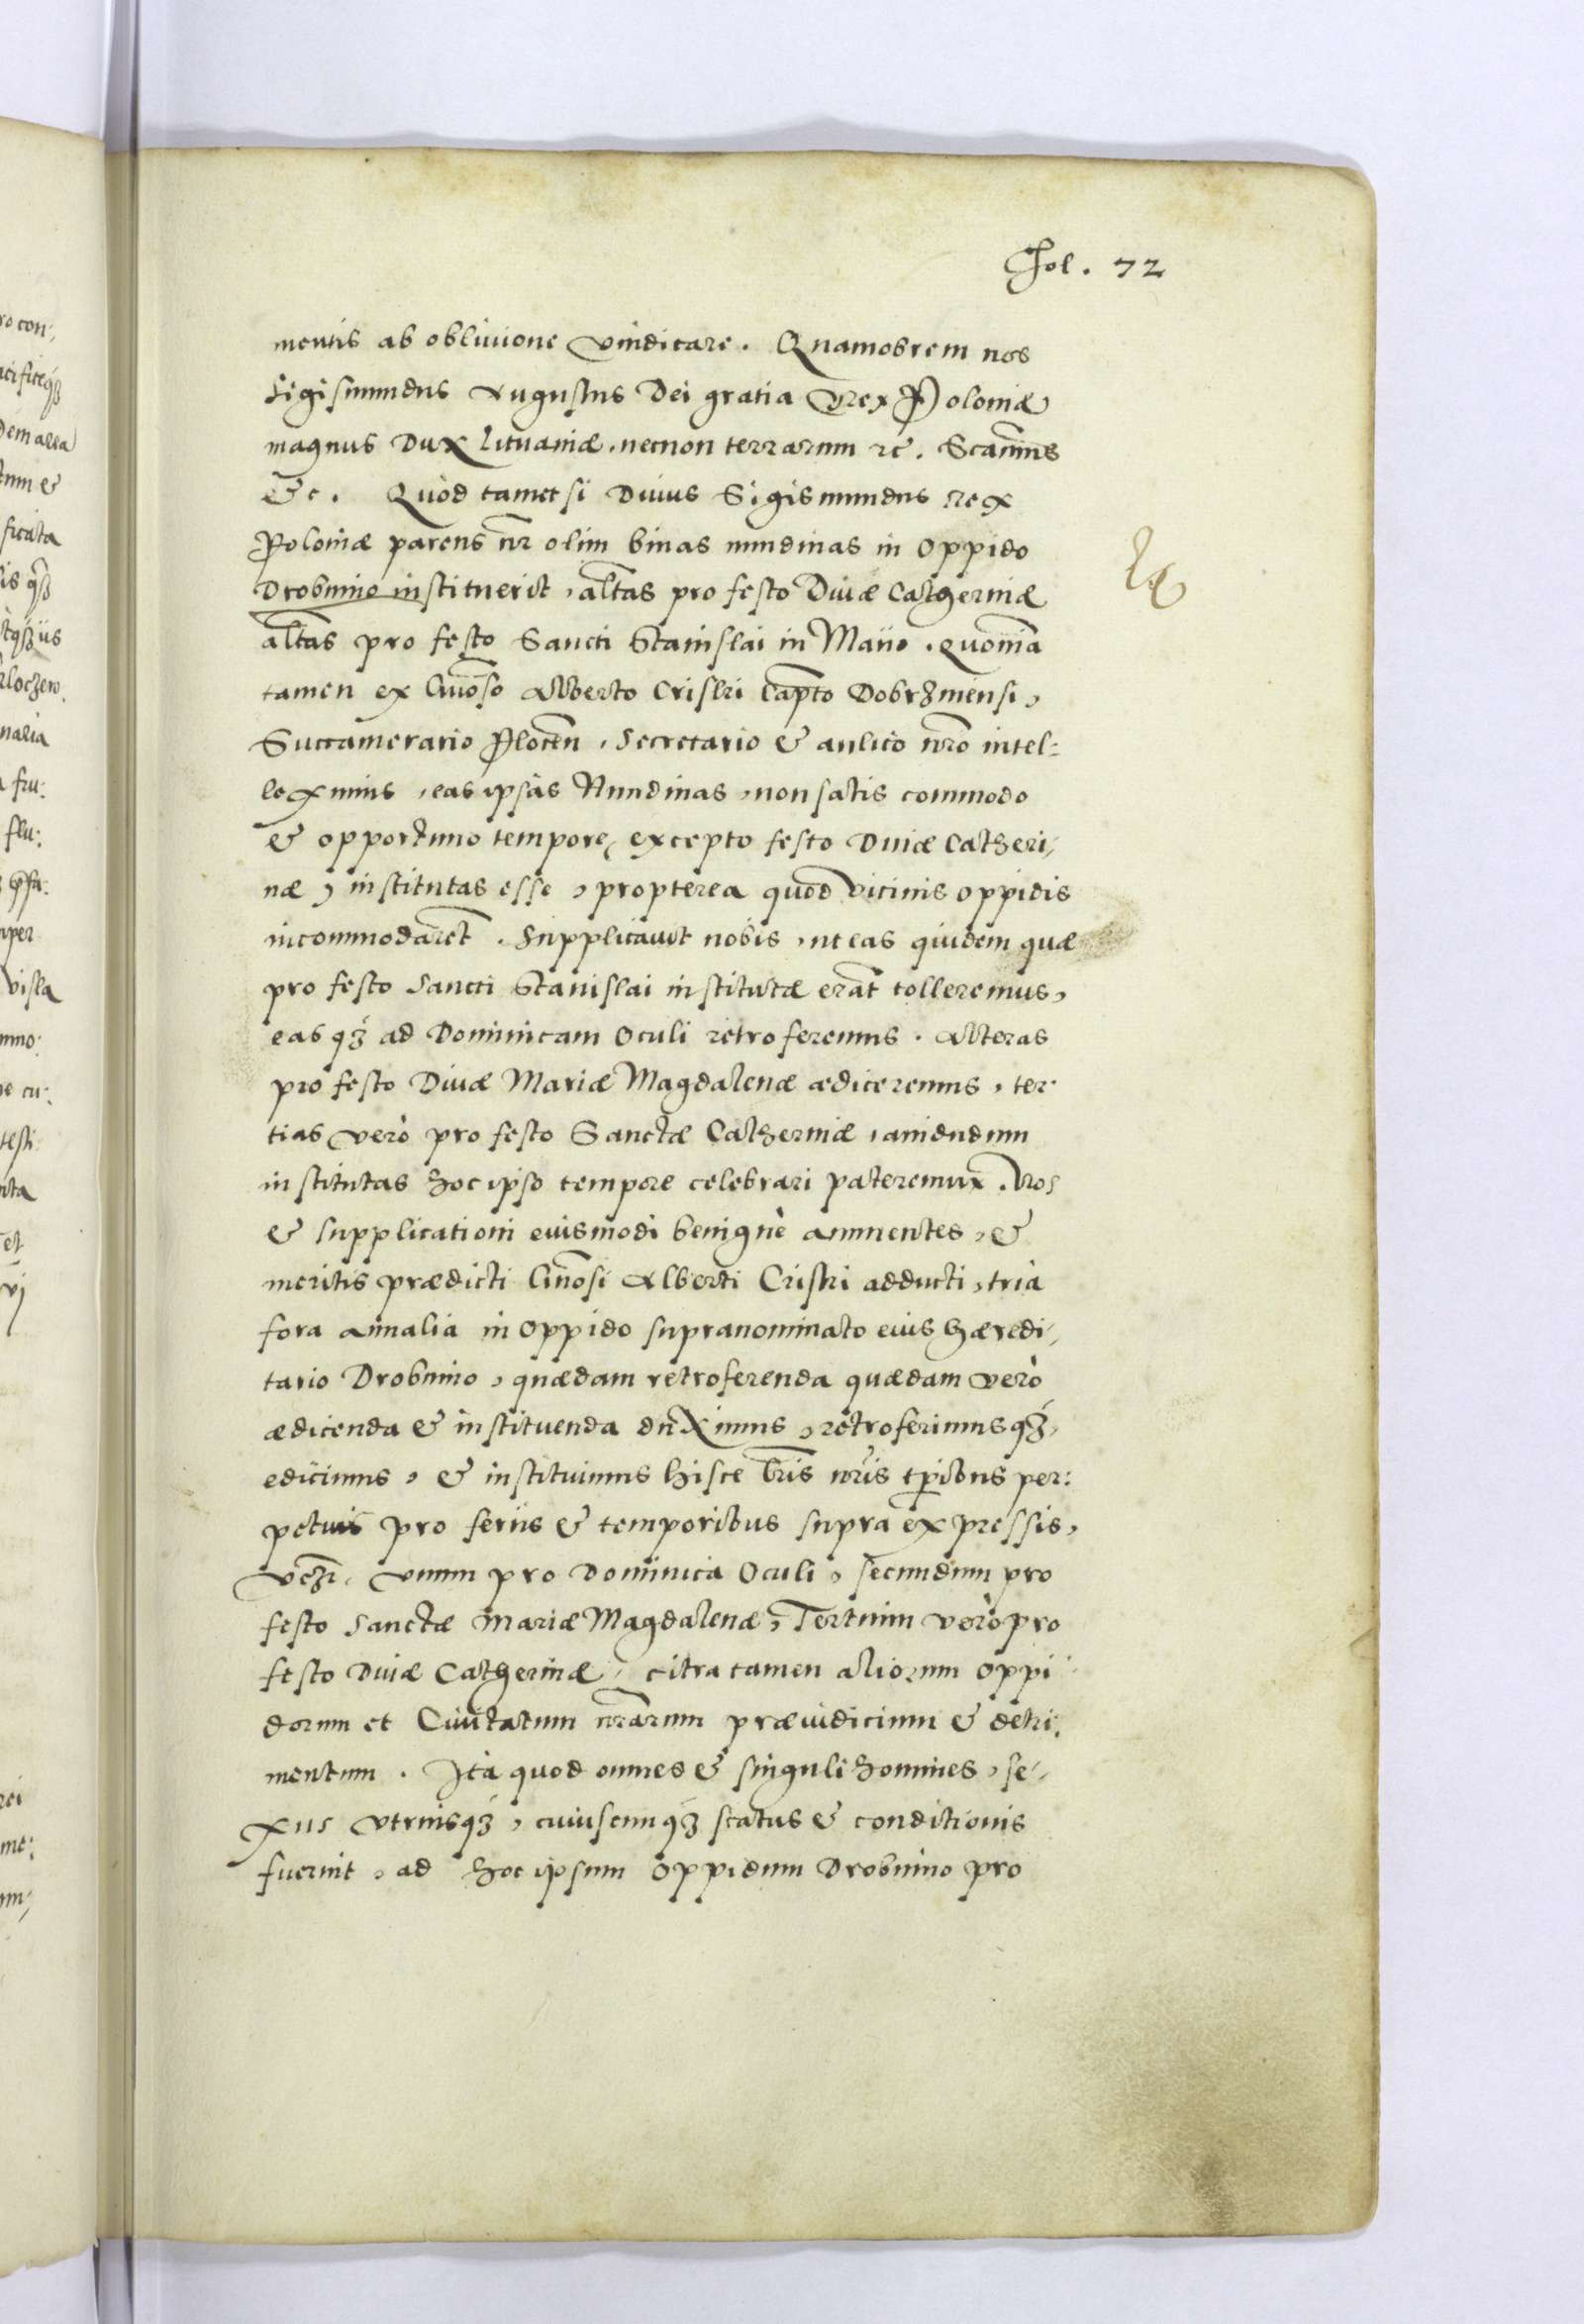 Fol. 72
mentis ab obliuione vindicare. Quamobrem nos
Sigismundus Augustus Dei gratia Rex Poloniæ
magnus Dux Lituaniæ, necnon terrarum rc. Scām̄s
&c. Quòd tametsi Diuus Sigismundus Rex
Poloniæ parens nr̄ olim binas nundinas in Oppido
Drobnino instituerit, alt̄as pro festo Diuæ Catherinæ
alt̄as pro festo Sancti Stanislai in Maiio. Quoniā
tamen ex Gn̄oso Alberto Criski Capt̄o Dobrzinensi,
Succamerario Plocēn, Secretario & aulico nr̄o intel:
leximus, eas ipsas Nundinas, non satis commodo
& opportuno tempore, excepto festo Diuæ Catheri,
næ, institutas esse, propterea quod vicinis oppidis
incommodarēt. Supplicauit nobis, ut eas quidem quæ
pro festo Sancti Stanislai institutæ erāt tolleremus,
easqz ad Dominicam Oculi retroferemus. Alteras
pro festo Diuæ Mariæ Magdalenæ ædiceremus, ter
tias verò pro festo Sanctæ Catherinæ, amdudum
institutas hoc ipso tempore celebrari pateremur. Nos
& supplicationi euismodi benignè annuentes, &
meritis prædicti Gn̄osi Alberti Criski adducti, tria
fora annalia in Oppido supranominato eius hæredi,
tario Drobnino, quædam retroferenda quædam verò
ædicenda & instituenda duximus, retroferimusqz,
edicimus, & instituimus hisce lr̄is nr̄is tp̄ibus per:
petuis pro feriis & temporibus supra expressis,
vcz̄t, vnum pro Dominica Oculi, secundum pro
festo Sanctæ Mariæ Magdalenæ, Tertium verò pro
festo Diuæ Catherinæ, citra tamen aliorum Oppi
dorum et Ciuitatum nr̄arum præiudicium & detri,
mentum. Ita quod omnes & singuli homines, se,
xus vtriusqz, cuiuscunqz status & conditionis
fuerint, ad hoc ipsum Oppidum Drobnino pro